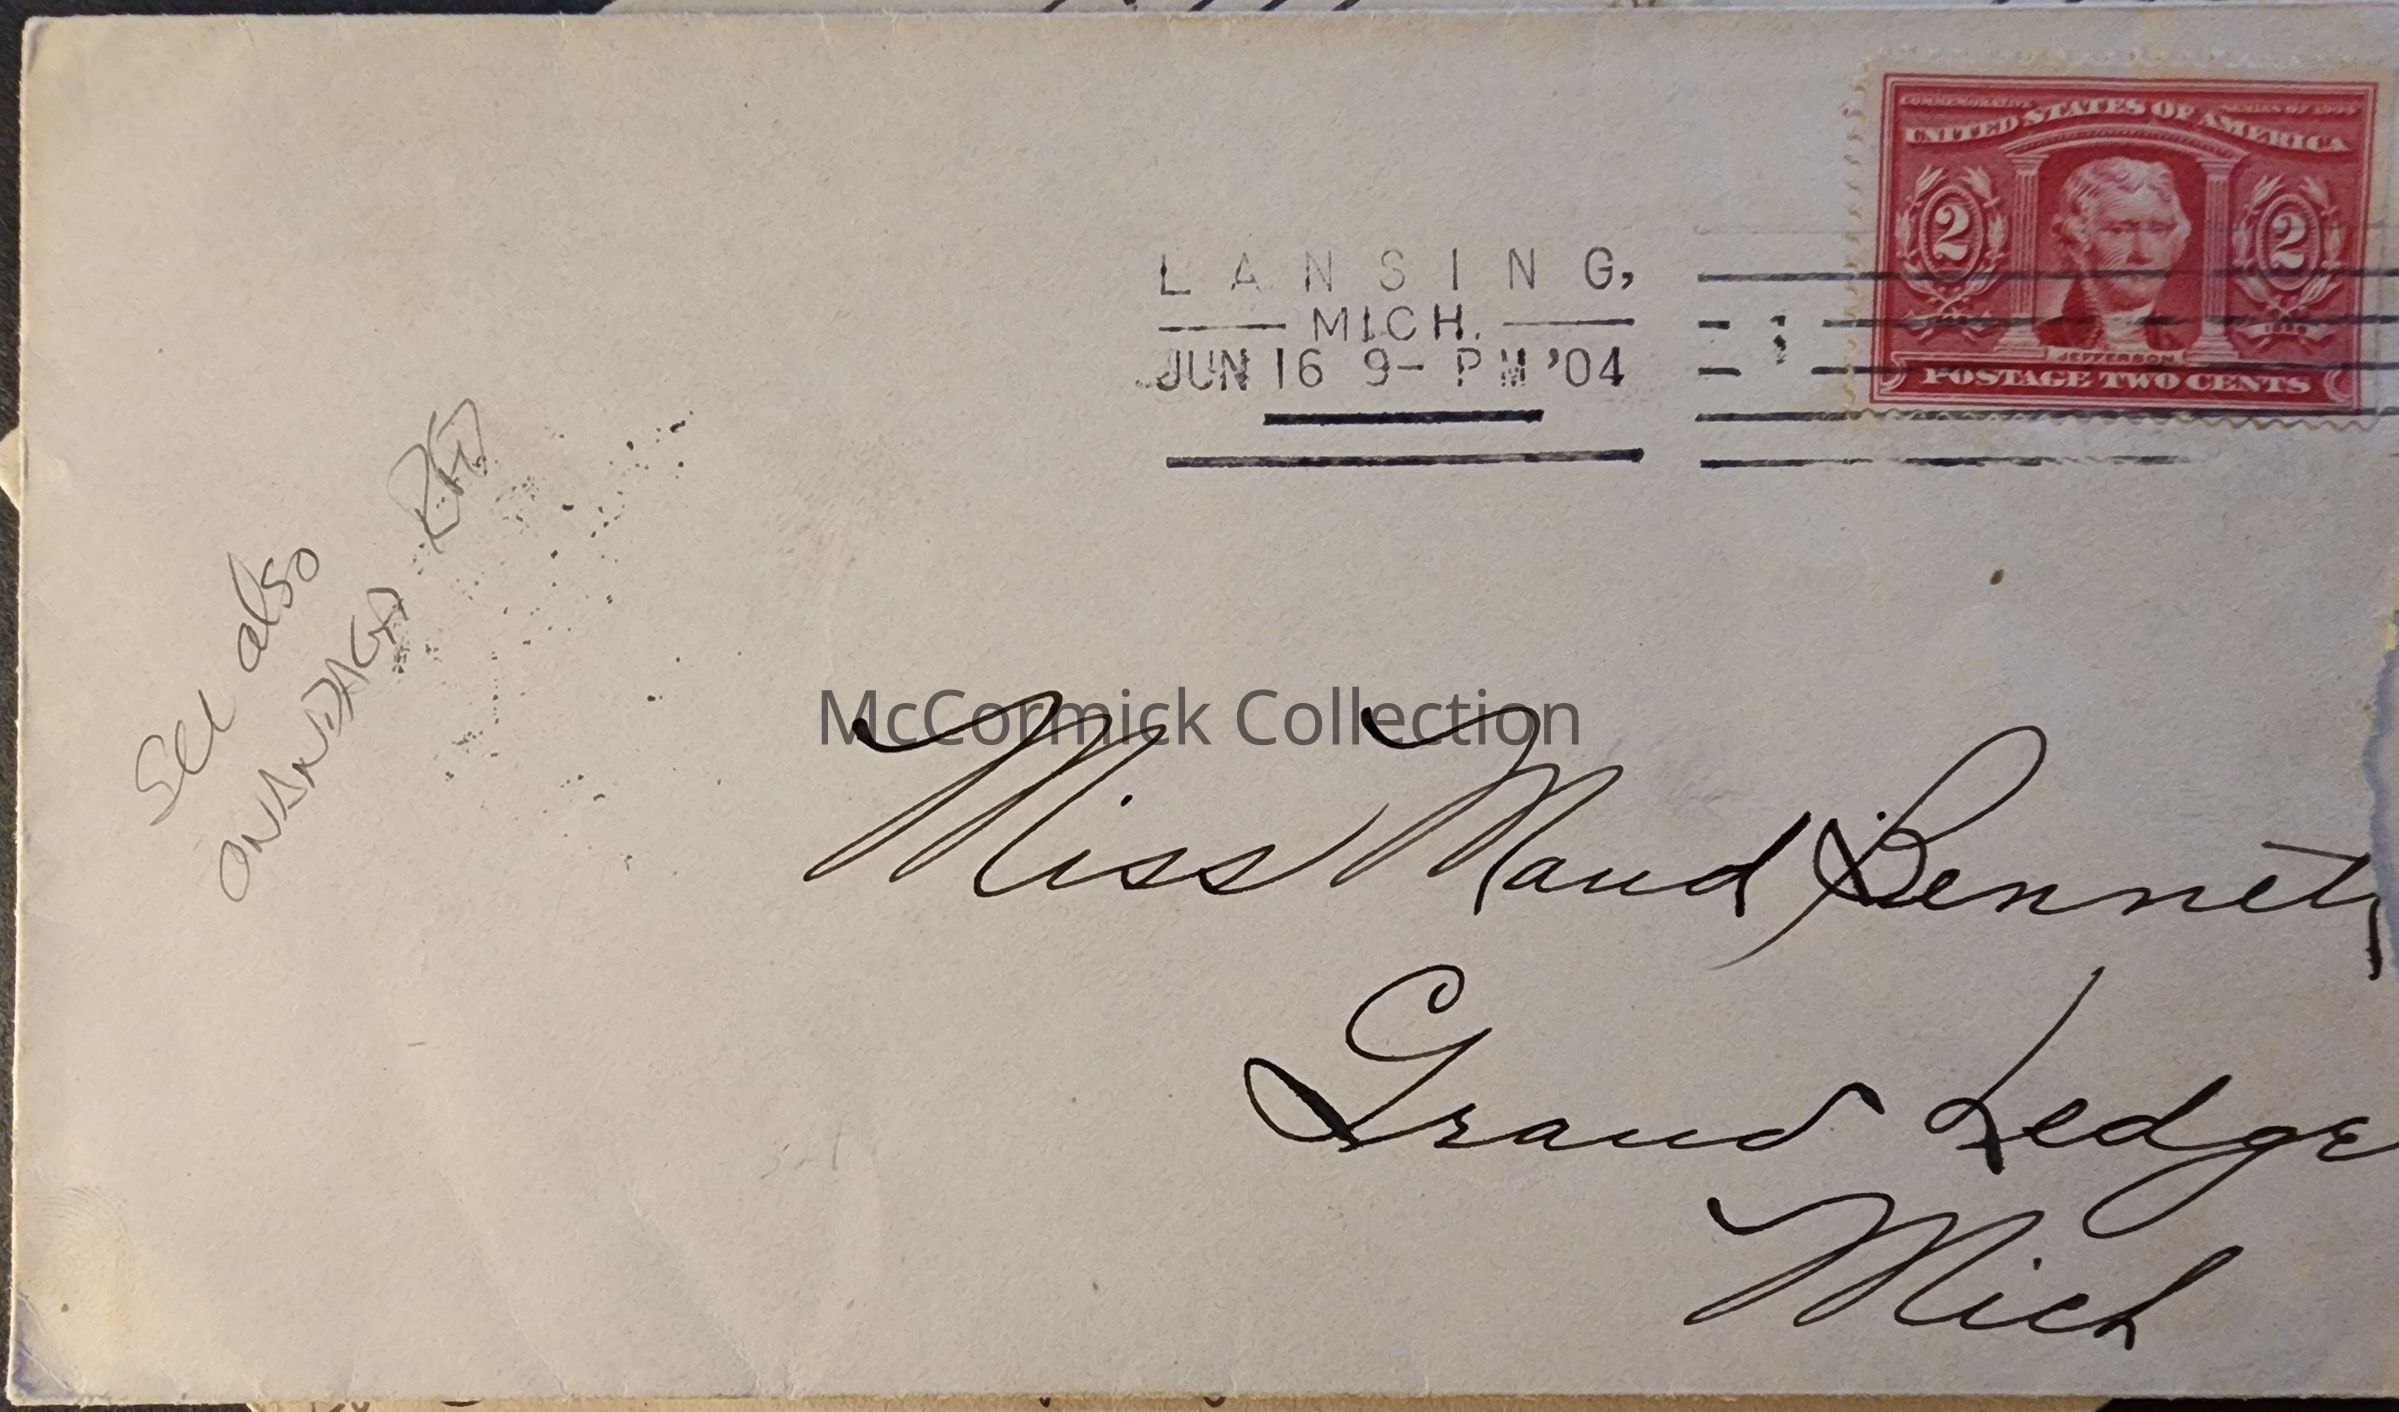 COMMEMORATIVE SERIES OF 1904
UNITED STATES OF AMERICA
2 2
JEFFERSON
POSTAGE TWO CENTS
LANSING,
MICH.
JUN 16 9- PM '04
1
See also
McCormick Collection
Miss Maud Bennett
Grand Ledge
Mich